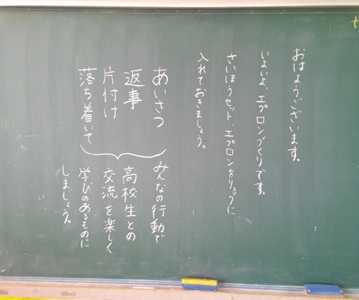 おはようございます。
いよいよ、エプロンづくりです。
さいほうセット、エプロンをリュックに
入れておきましょう。
あいさつ
返事
片付け
落ち着いて
みんなの行動で
高校生との
交流を楽しく
学びのあるものに
しましょう。